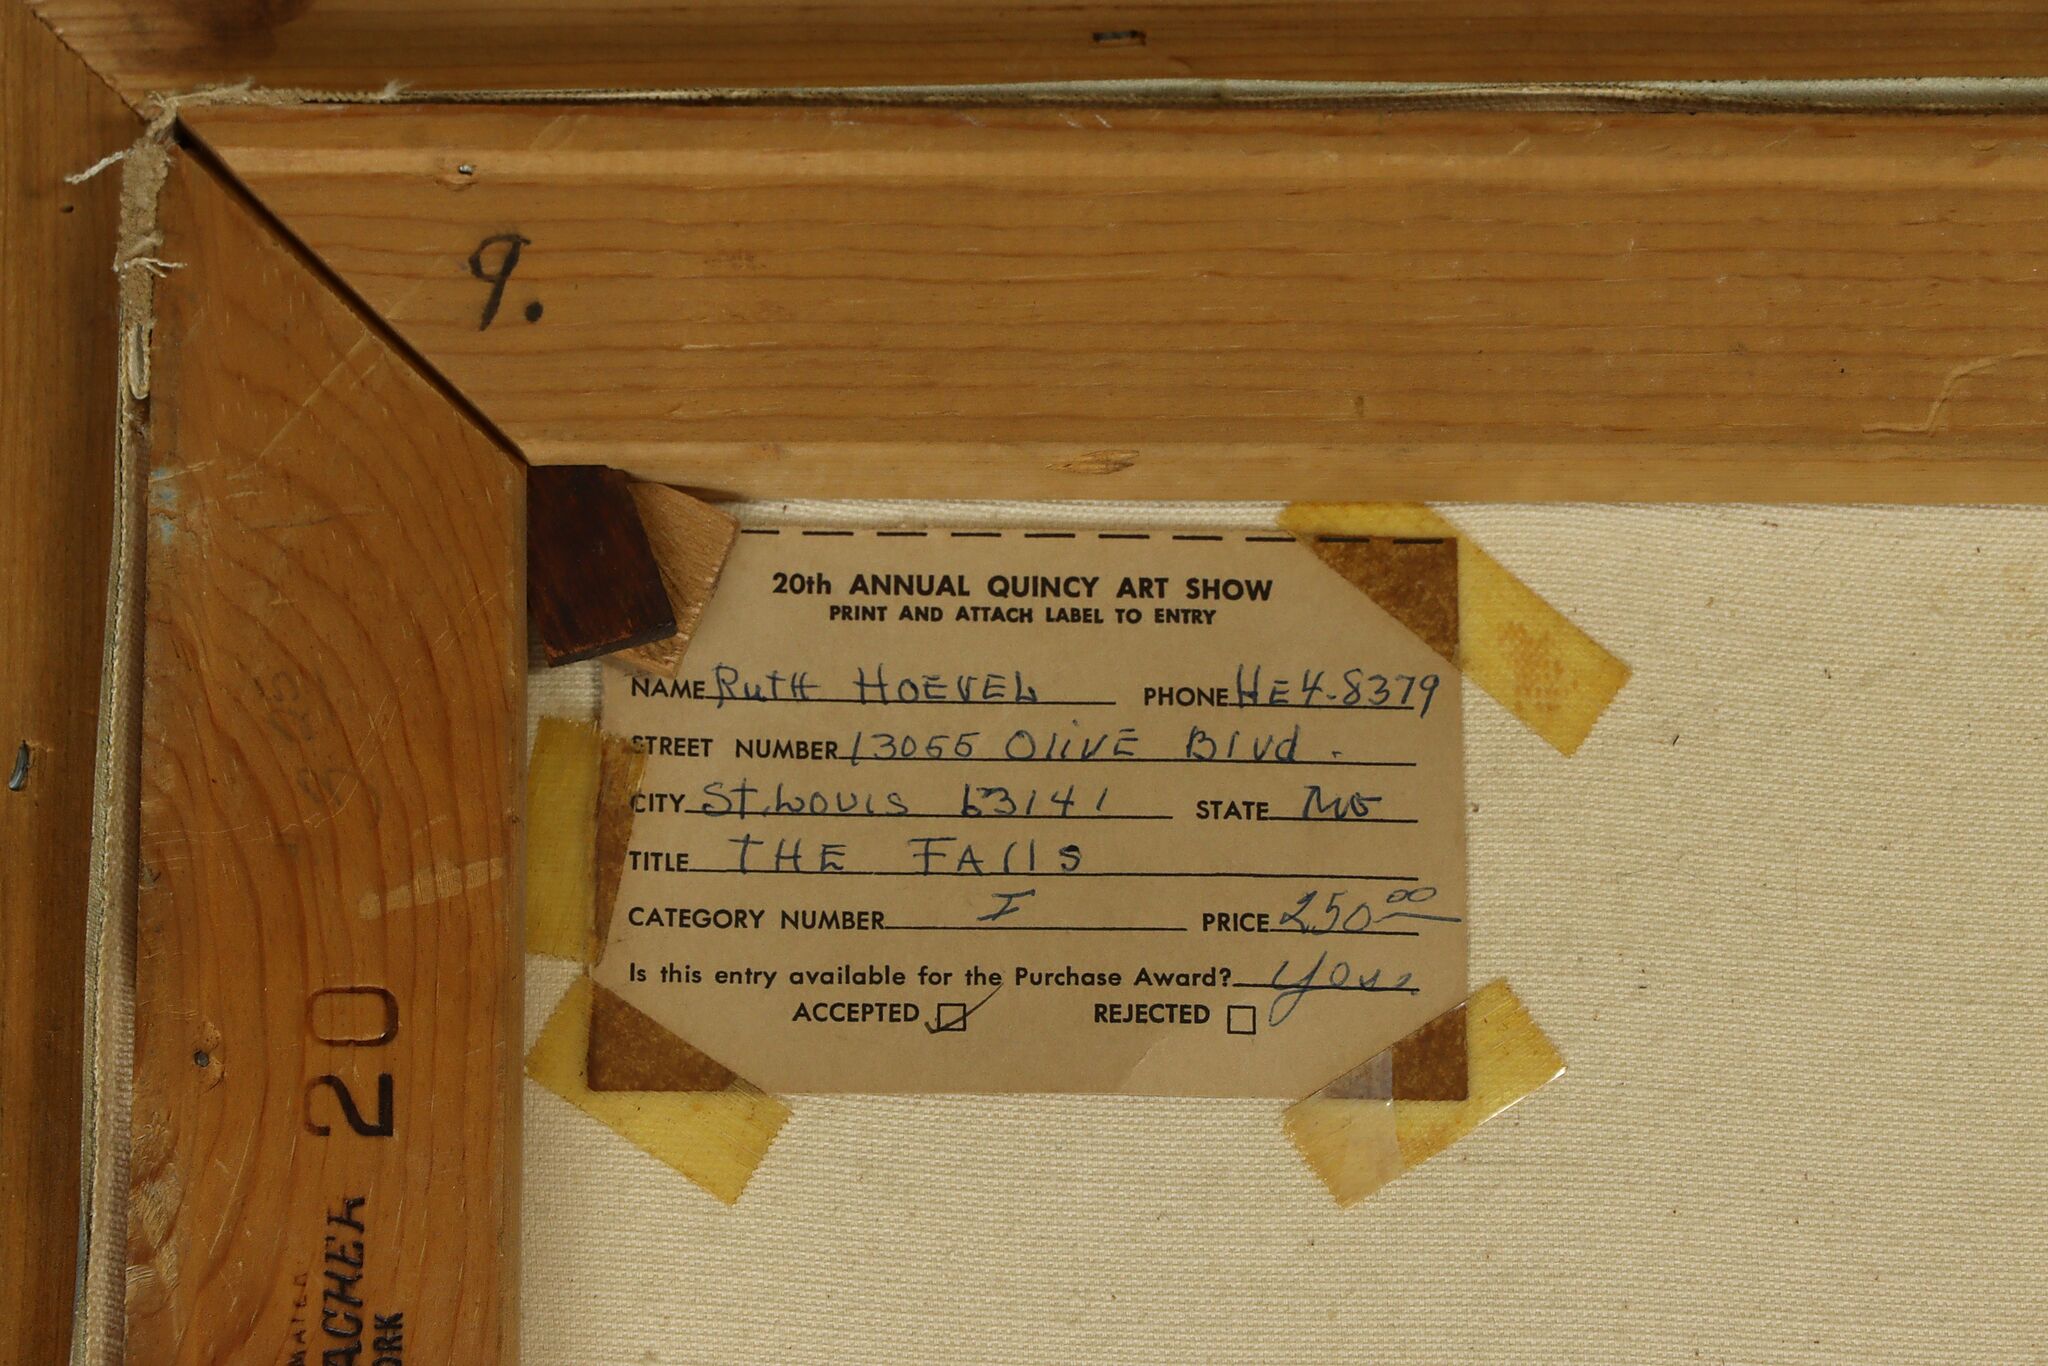 9.
20th ANNUAL QUINCY ART SHOW
PRINT AND ATTACH LABEL TO ENTRY
NAME RUTH HOEVEL PHONE HE4-8379
STREET NUMBER 13055 OliVE Blvd.
CITY ST. LOUIS 63141 STATE Mo
TITLE THE FAllS
CATEGORY NUMBER I PRICE 250.00
Is this entry available for the Purchase Award?
ACCEPTED REJECTED
20
ACHER
ORK